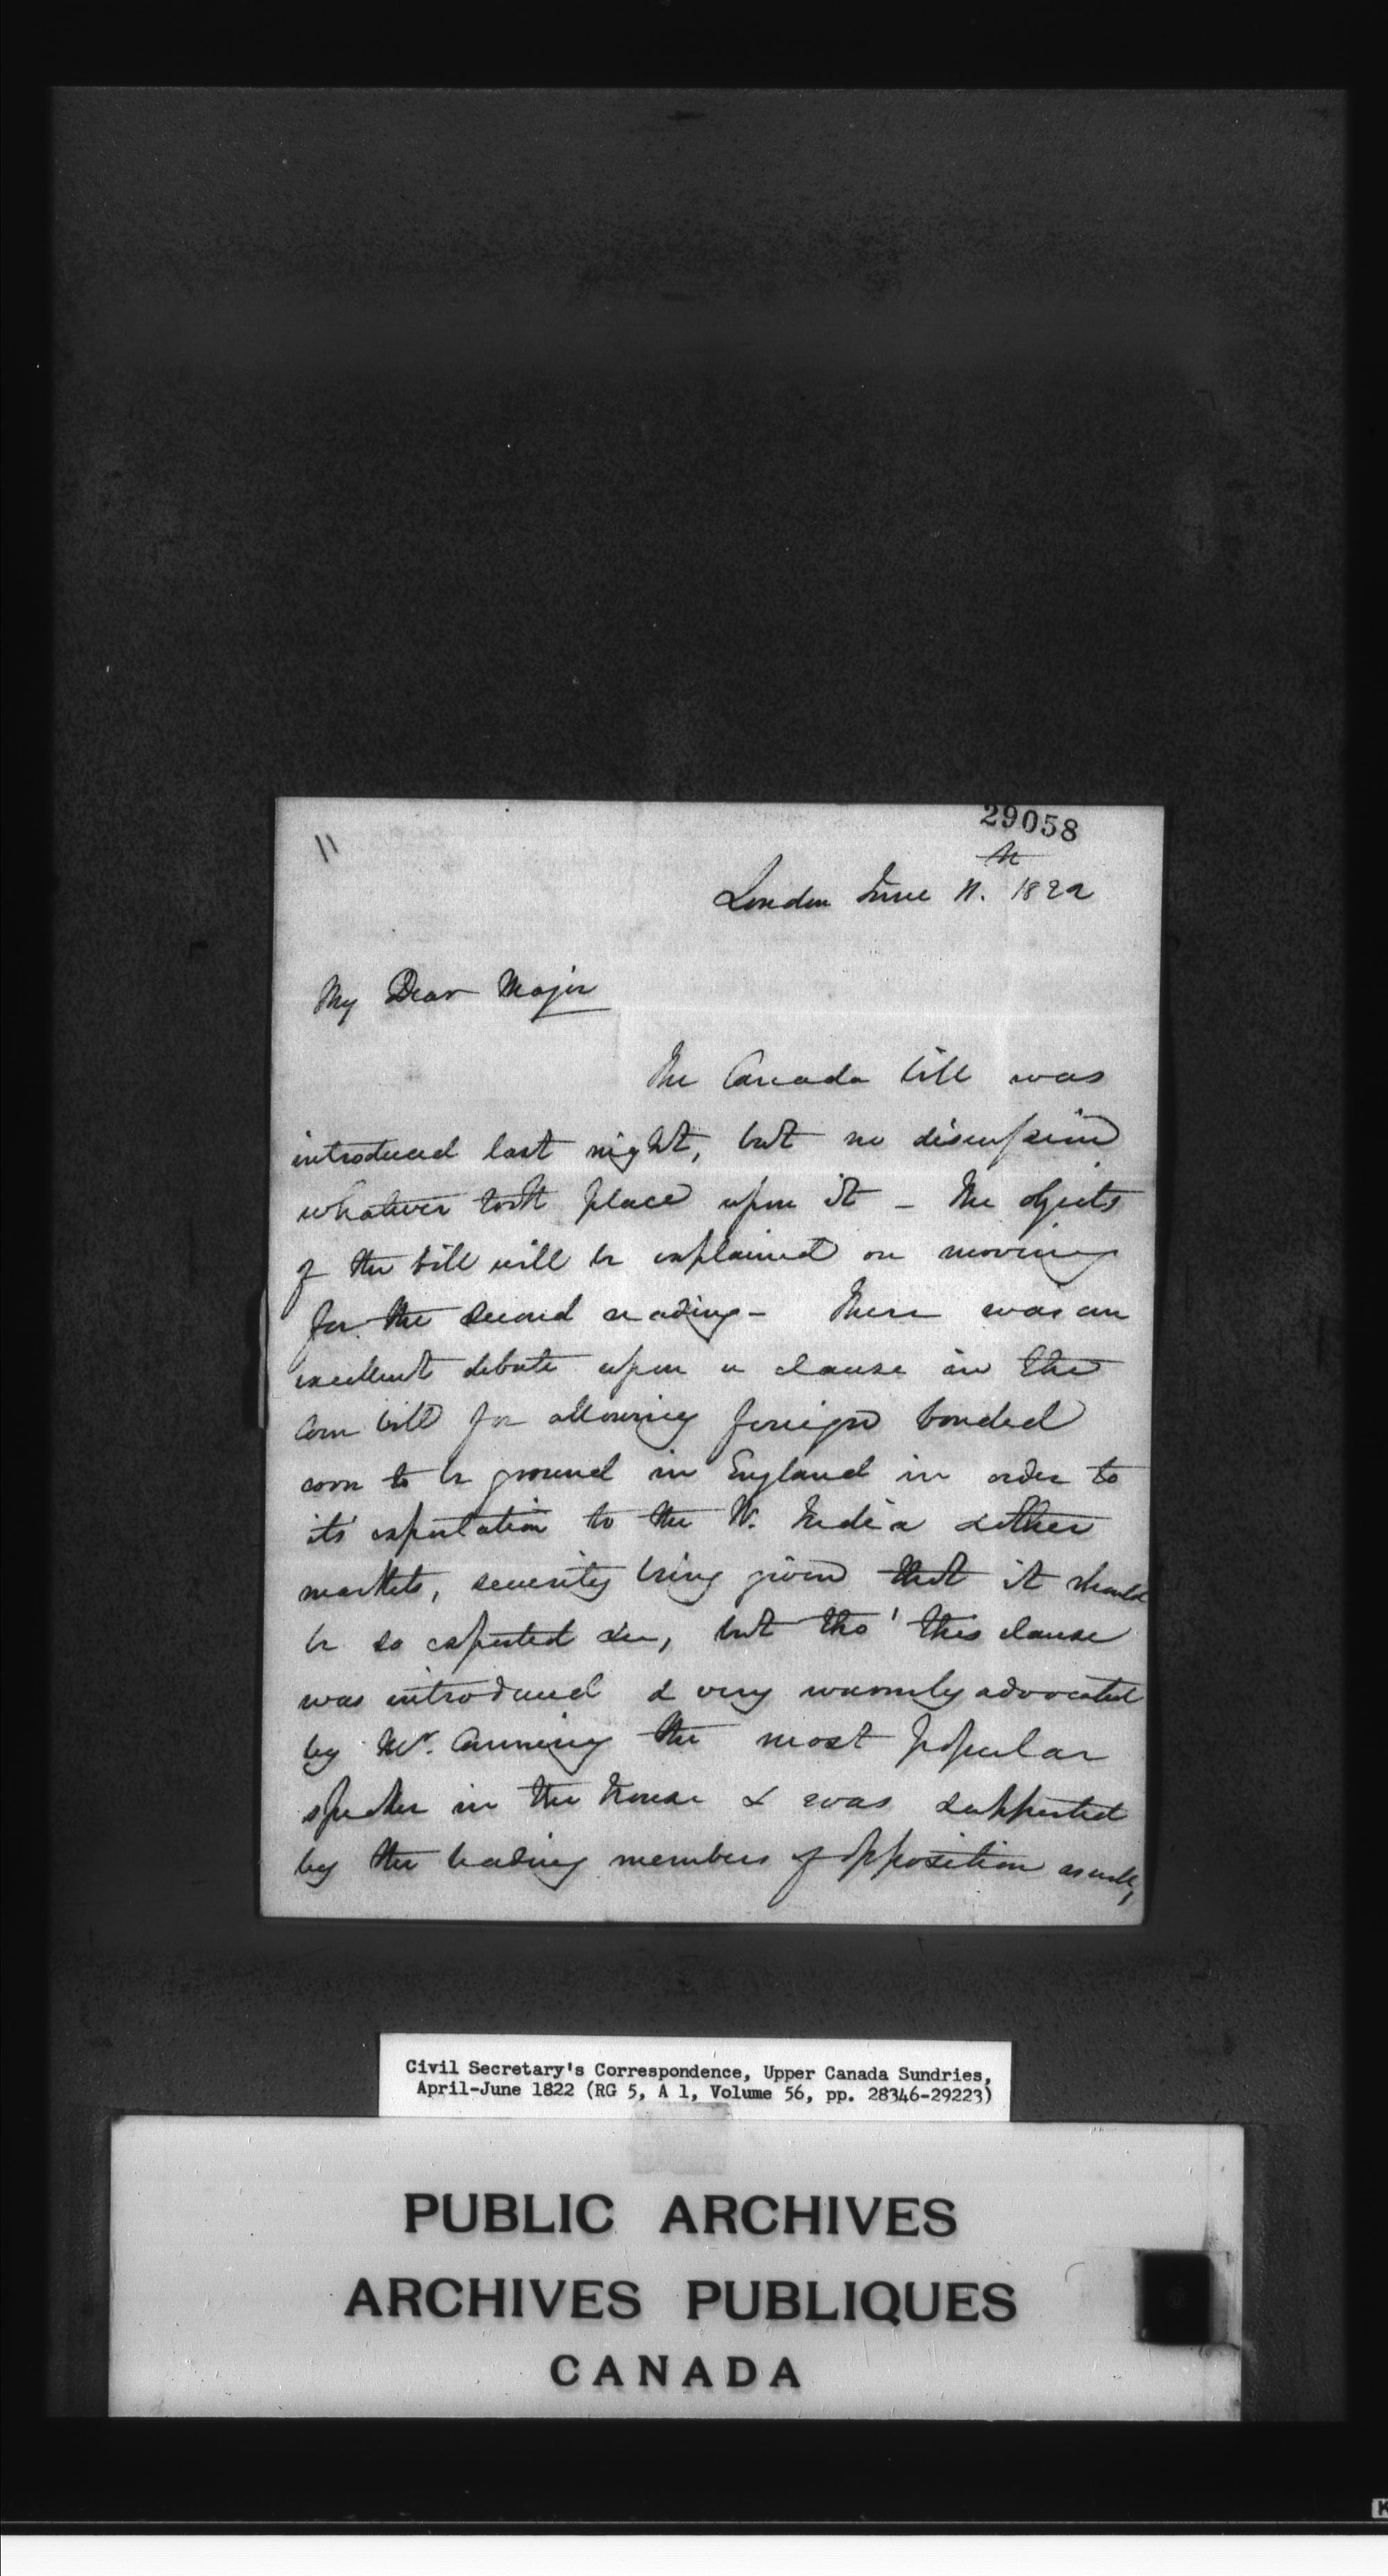 29058
11
London June 11.th 1822
My Dear Major
The Canada bill was
introduced last night, but no discussion
whatever took place upon it – The objects
of the bill will be explained on moving
for the second reading – There was an
excellent debate upon a clause in the
Corn bill for allowing foreign bonded
corn to be ground in England in order to
its exportation to the W. India & other
markets, security being given that it should
be so exported &c, but tho' this clause
was introduced & very warmly advocated
by Mr. Canning the most popular
speaker in the house & was supported
by the leading members of opposition as well,
Civil Secretary's Correspondence, Upper Canada Sundries,
April-June 1822 (RG 5, A 1, Volume 56, pp. 28346-29223)
PUBLIC ARCHIVES
ARCHIVES PUBLIQUES
CANADA
K